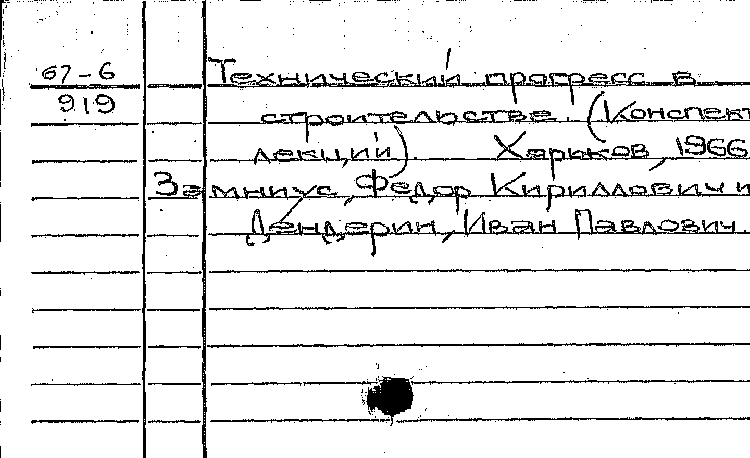 67-6 Технический прогресс в
919 строительстве. (Конспект
лекций). Харьков, 1966
Замниус, Федор Кириллович и
Дендерин, Иван Павлович.